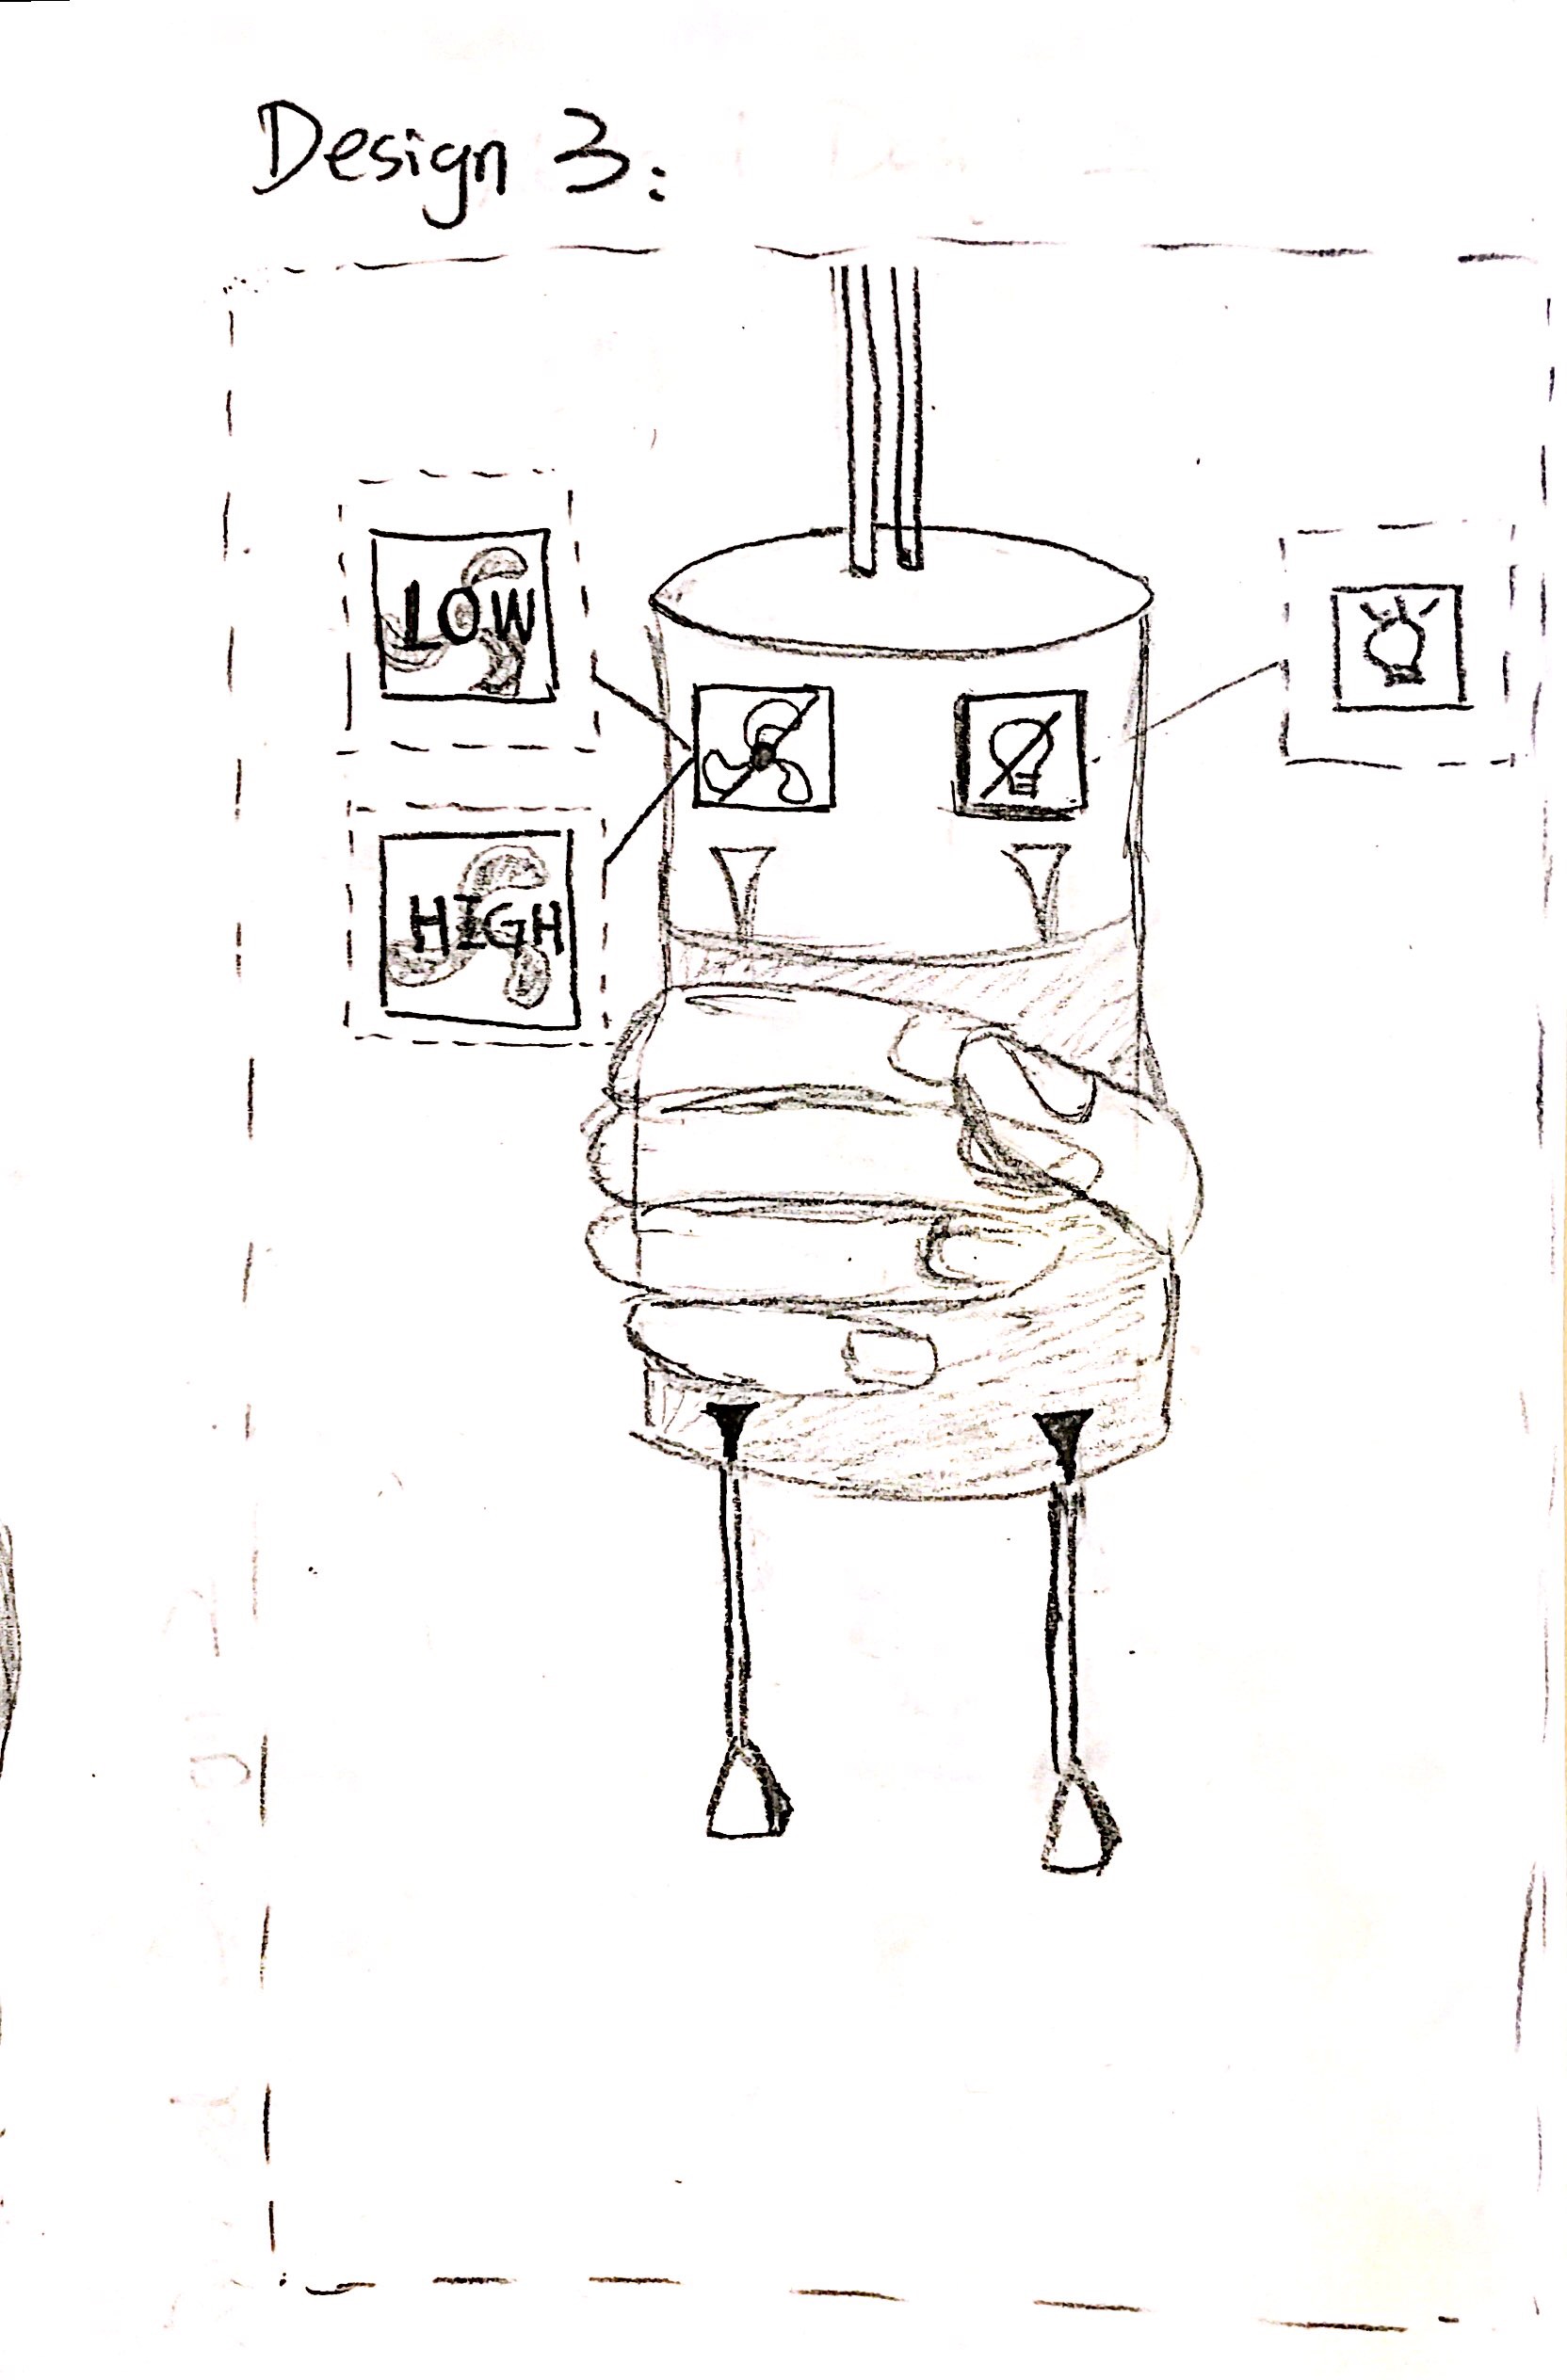 Design 3:
LOW
HIGH